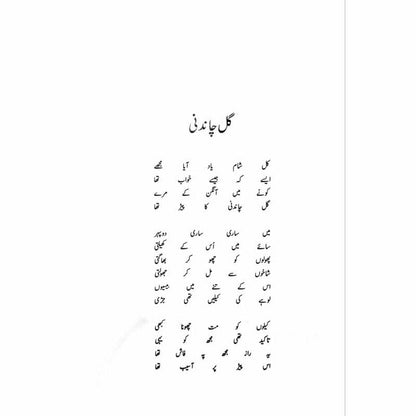 گل چاندنی
کل شام یاد آیا مجھے
ایسے کہ جیسے خواب تھا
کونے میں آنگن کے مرے
گل چاندنی کا پیڑ تھا
میں ساری ساری دوپہر
سائے میں اُس کے کھیلتی
پھولوں کو چھو کر بھاگتی
شاخوں سے مل کر جھولتی
اس کے تنے میں بیسیوں
لوہے کی کیلیں تھیں جڑی
کیلوں کو مت چھونا کبھی
تاکید تھی مجھ کو یہی
یہ راز مجھ پہ فاش تھا
اس پیڑ پر آسیب تھا